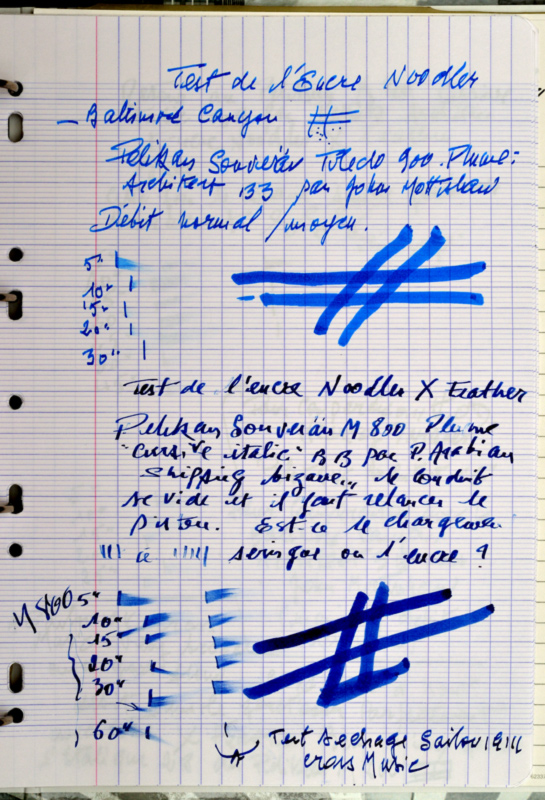 Test de l'Encre Noodler
- Baltimore Canyon
Pelikan Souverän Toledo 900. Plume:
Architect 133 par John Mottishaw
Débit normal / moyen.
5"
10"
15"
20"
30"
Test de l'encre Noodler X Feather
Pelikan Souverän M 800 Plume
"cursive italic" BB par P. Arabian
skipping bizarre... le conduit
se vide et il faut relancer le
piston. Est-ce le chargement
à seringue ou l'encre ?
M 800 5"
10"
15"
20"
30"
60"
Test séchage Sailor 1911
cross Music